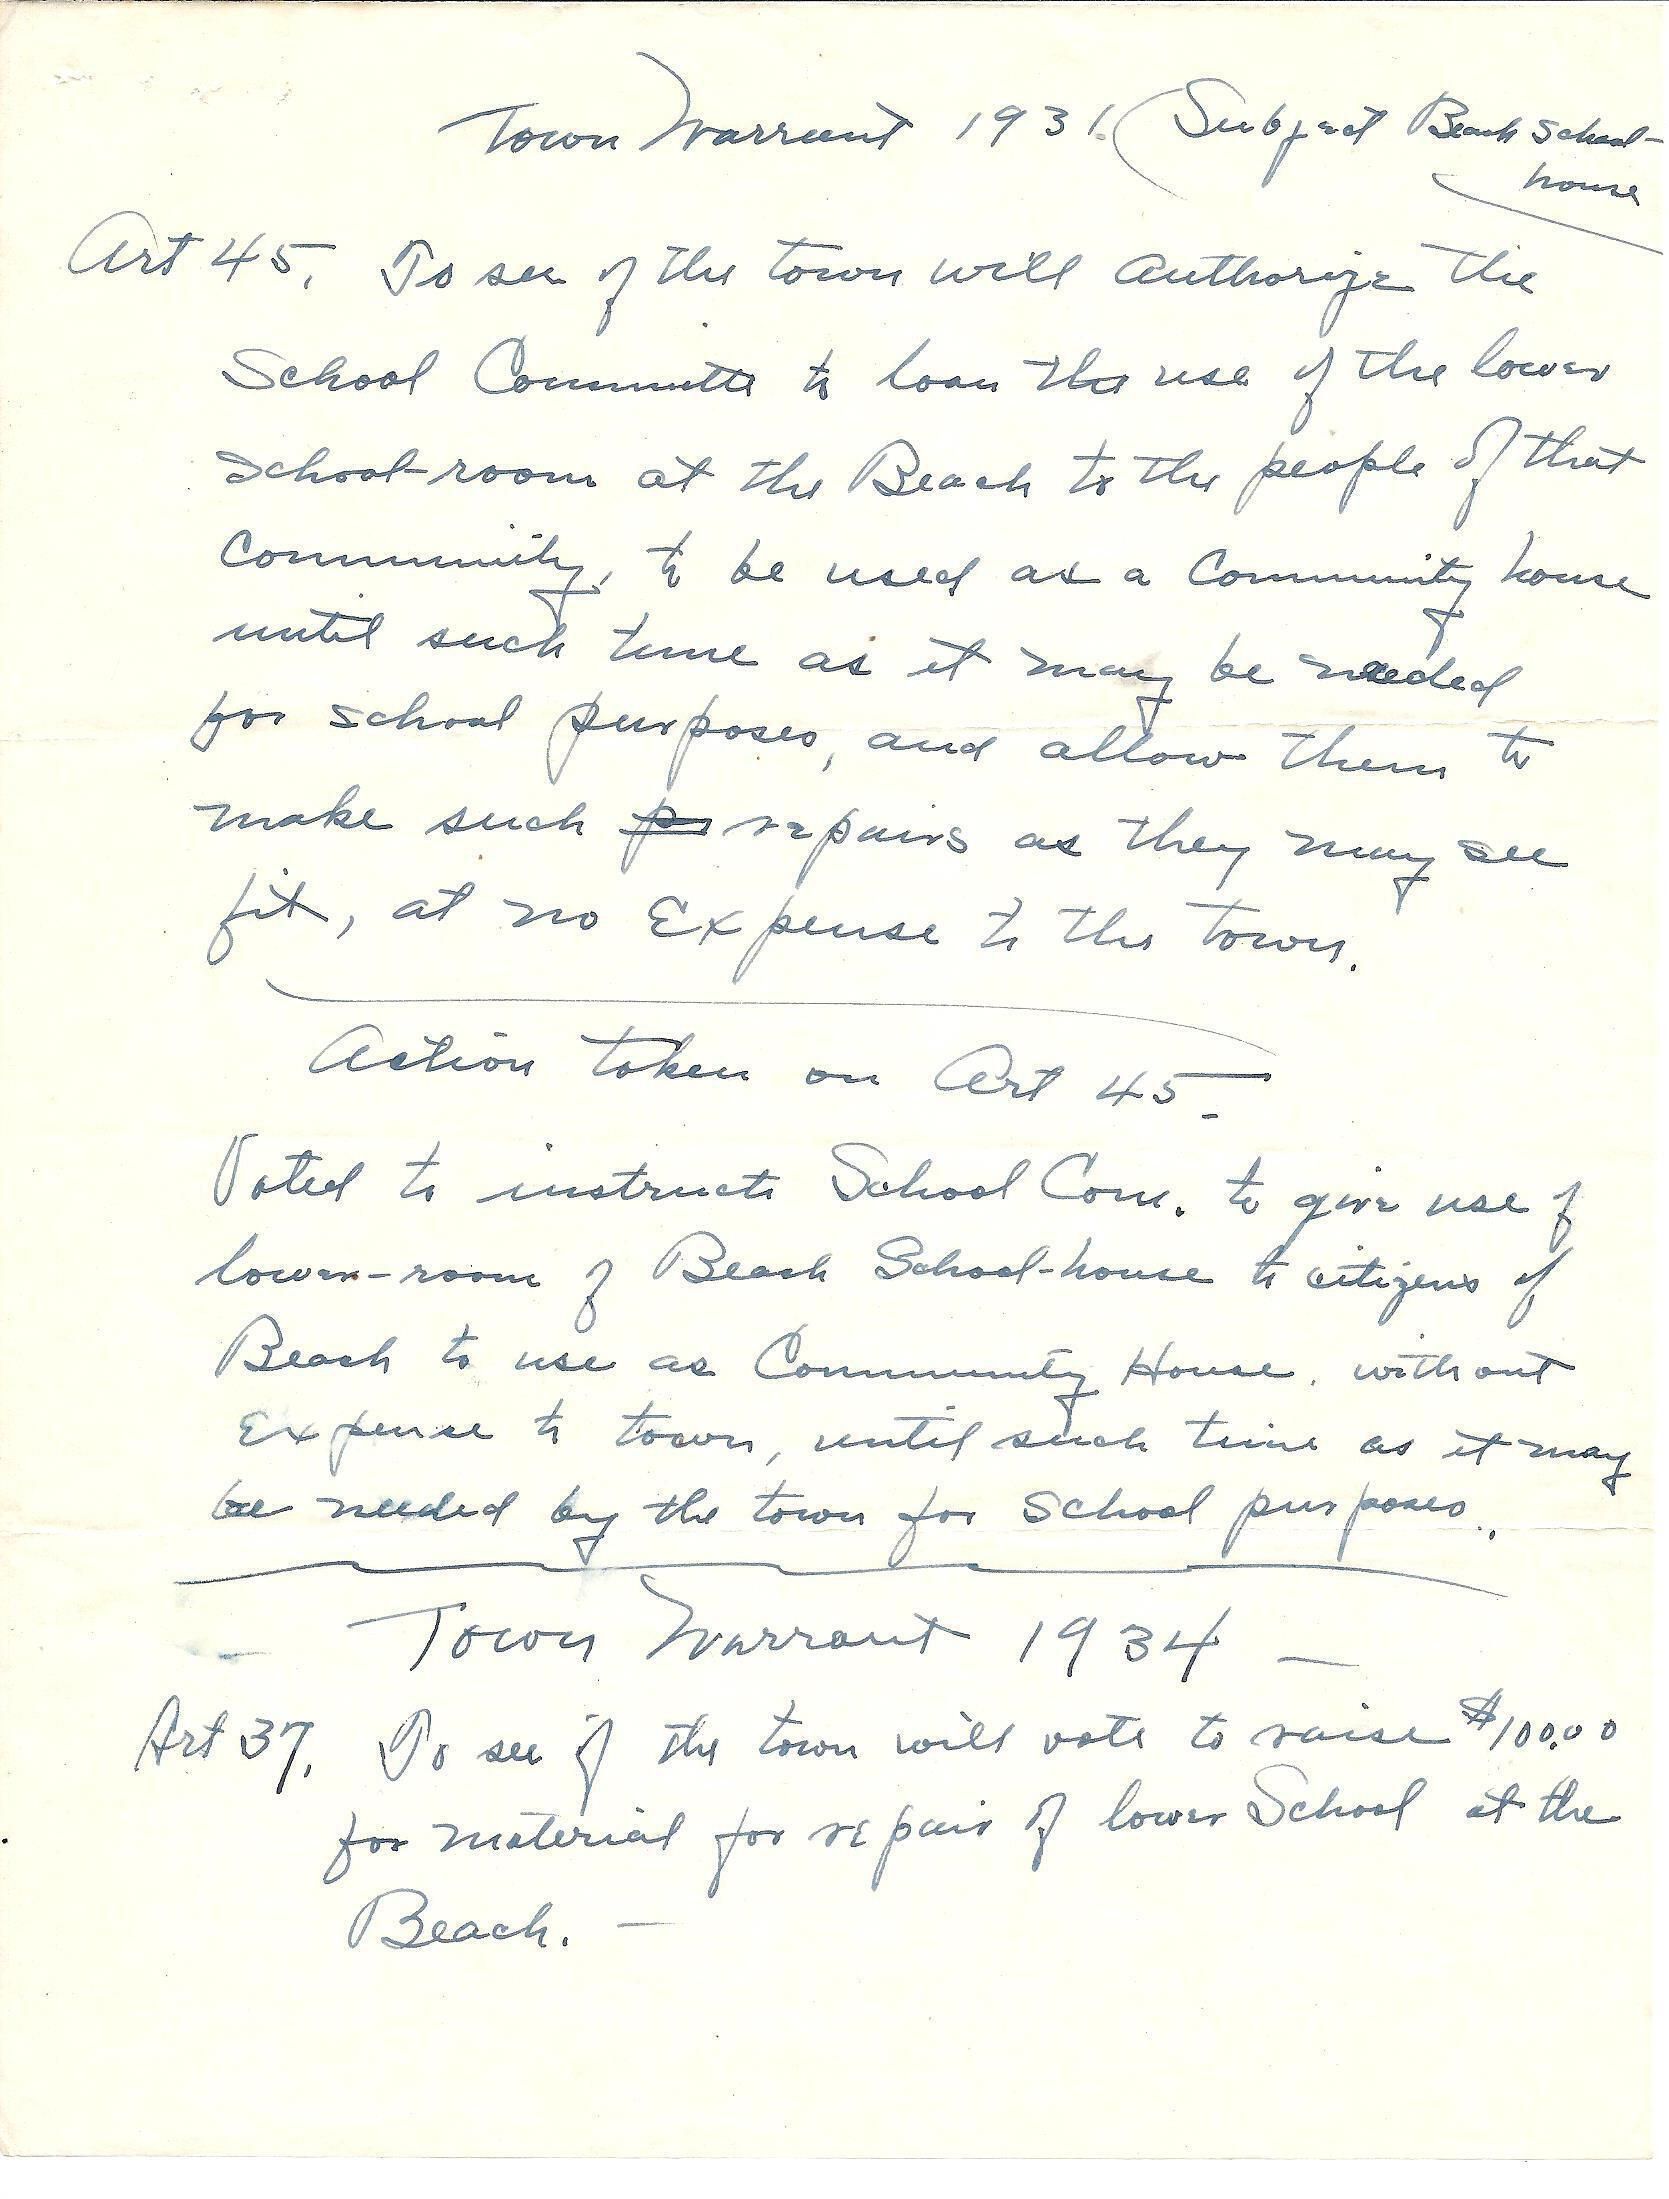 Town Warrant 1931. (Subject Beach School-
house
Art 45. To see if the town will authorize the
School Committe to loan the use of the lower
school-room at the Beach to the people of that
Community, to be used as a Community house
until such time as it may be needed
for school purposes, and allow them to
make such repairs as they may see
fit, at no Expense to the town.
Action taken on Art 45.
Voted to instruct School Com. to give use of
lower-room of Beach School-house to citizens of
Beach to use as Community House. without
Expense to town, until such time as it may
be needed by the town for School purposes.
Town Warrant 1934 —
Art 37. To see if the town will vote to raise $100.00
for material for repair of lower School at the
Beach. —